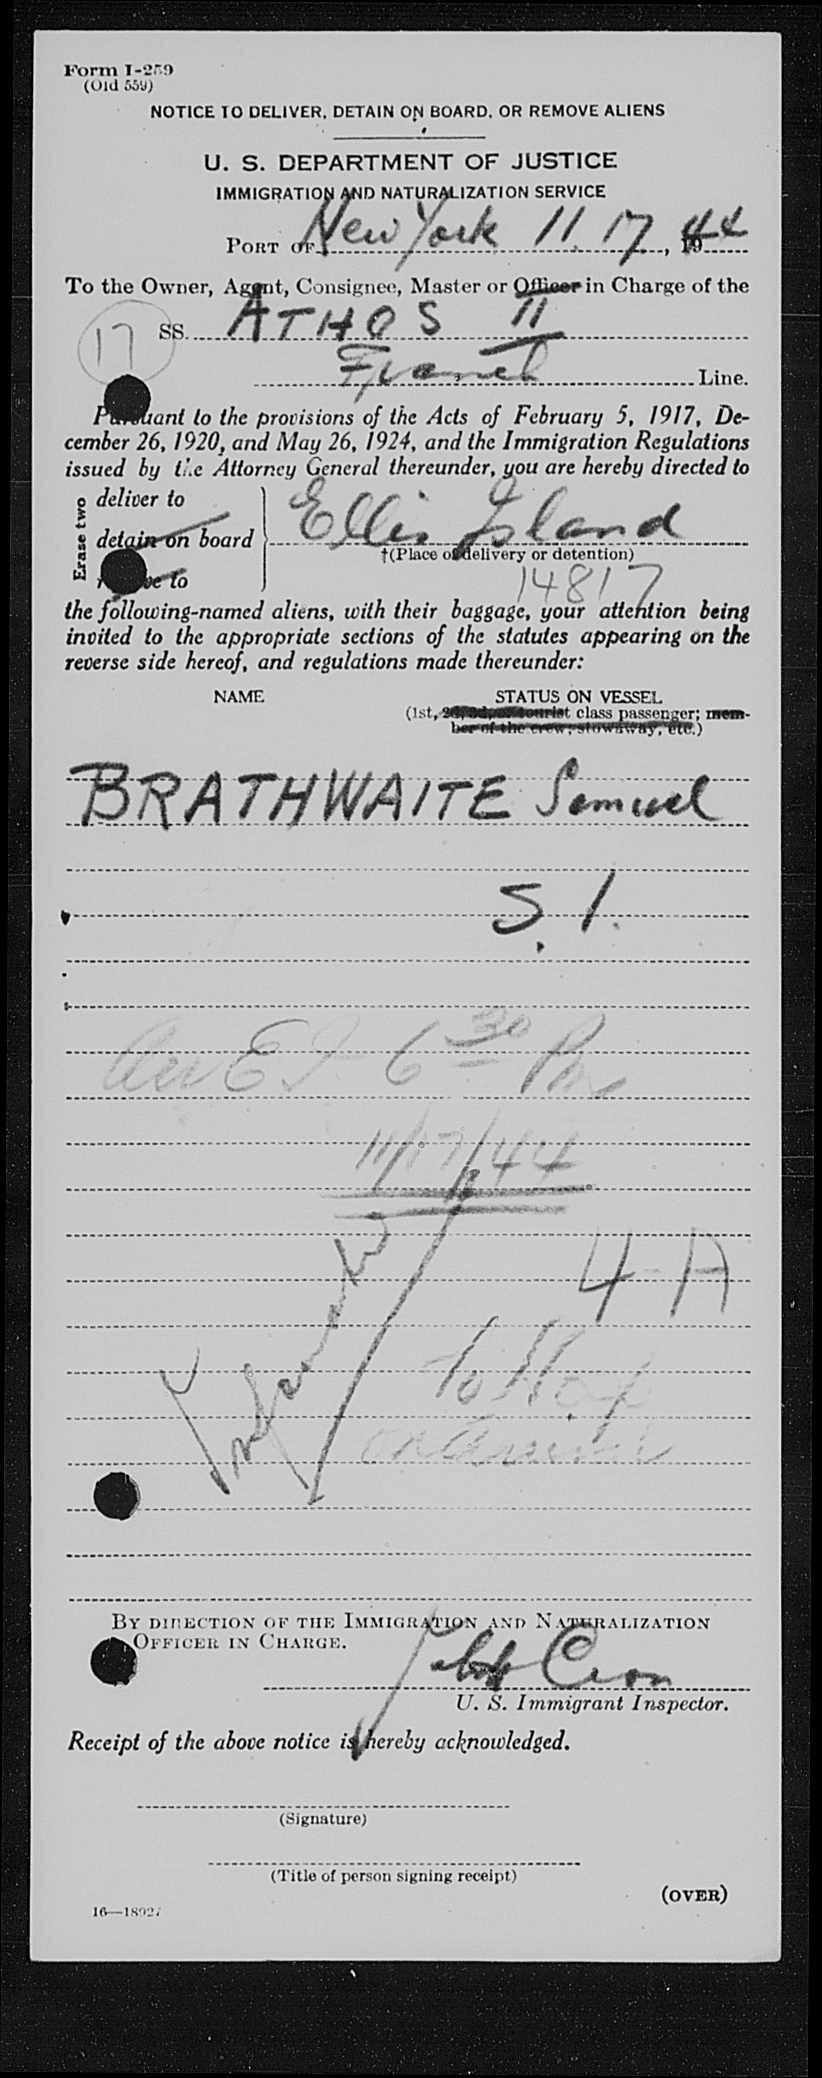 Form I-259
(Old 559)
NOTICE TO DELIVER, DETAIN ON BOARD, OR REMOVE ALIENS
U. S. DEPARTMENT OF JUSTICE
IMMIGRATION AND NATURALIZATION SERVICE
PORT OF New York 11. 17, 1944
To the Owner, Agent, Consignee, Master or Officer in Charge of the
17 SS. ATHOS II
French Line.
Pursuant to the provisions of the Acts of February 5, 1917, De-
cember 26, 1920, and May 26, 1924, and the Immigration Regulations
issued by the Attorney General thereunder, you are hereby directed to
Erase two
deliver to
detain on board
remove to
Ellis Island
†(Place of delivery or detention)
14817
the following-named aliens, with their baggage, your attention being
invited to the appropriate sections of the statutes appearing on the
reverse side hereof, and regulations made thereunder:
NAME STATUS ON VESSEL
(1st, 2d, 3d, or tourist class passenger; mem-
ber of the crew; stowaway, etc.)
BRATHWAITE Samuel
S. I.
Arr E I 6 30 Pm
11/17/44
4-A
To Hosp
on Arrival
BY DIRECTION OF THE IMMIGRATION AND NATURALIZATION
OFFICER IN CHARGE.
U. S. Immigrant Inspector.
Receipt of the above notice is hereby acknowledged.
(Signature)
(Title of person signing receipt)
(OVER)
16—18927